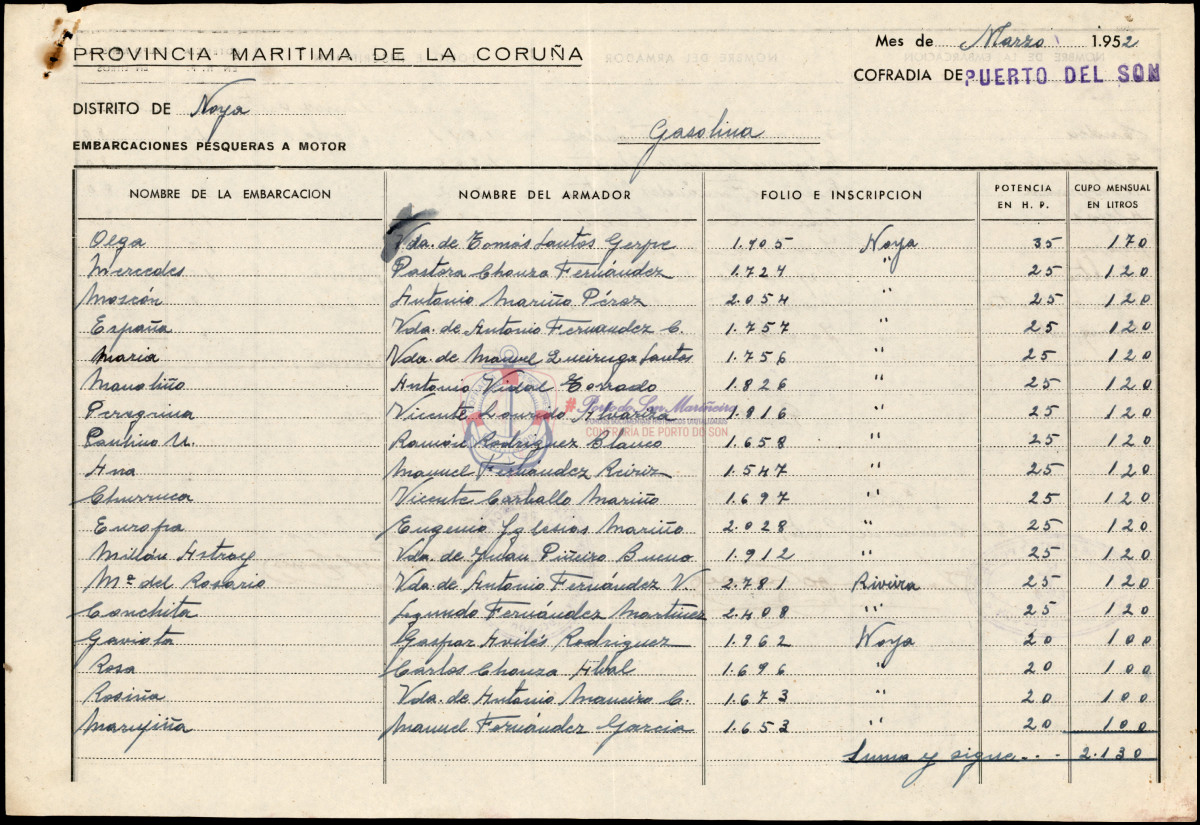 PROVINCIA MARITIMA DE LA CORUÑA
Mes de Marzo 1.952
COFRADIA DE PUERTO DEL SON
DISTRITO DE Noya
Gasolina
EMBARCACIONES PESQUERAS A MOTOR
NOMBRE DE LA EMBARCACION NOMBRE DEL ARMADOR FOLIO E INSCRIPCION POTENCIA EN H. P. CUPO MENSUAL EN LITROS
Olga Vda. de Tomás Santos Gerpe 1.705 Noya 35 170
Mercedes Pastora Chouza Fernández 1.727 " 25 120
Moscón Antonio Mariño Pérez 2.054 " 25 120
España Vda. de Antonio Fernandez C. 1.757 " 25 120
Maria Vda. de Manuel Queiruga Santos 1.756 " 25 120
Manoliño Antonio Vidal 1.826 " 25 120
Peregrina Vicente Lourido 1.816 " 25 120
Paulino U. Ramón Rodriguez Blanco 1.658 " 25 120
Ana Manuel Fernández Ririz 1.547 " 25 120
Churruca Vicente Carballo Mariño 1.697 " 25 120
Europa Eugenio Yglesias Mariño 2.028 " 25 120
Millán Astray Vda. de Juan Piñeiro Bueno 1.912 " 25 120
Mª del Rosario Vda. de Antonio Fernández V. 2.781 Riveira 25 120
Conchita Segundo Fernández Martinez 2.408 " 25 120
Gaviota Gaspar Avilés Rodriguez 1.962 Noya 20 100
Rosa Carlos Chouza Abal 1.696 " 20 100
Rosiña Vda. de Antonio Maneiro C. 1.673 " 20 100
Marujiña Manuel Fernández Garcia 1.653 " 20 100
Suma y sigue.... 2.130
#Porto do Son Mariñeiro
CONFRARIA DE PORTO DO SON